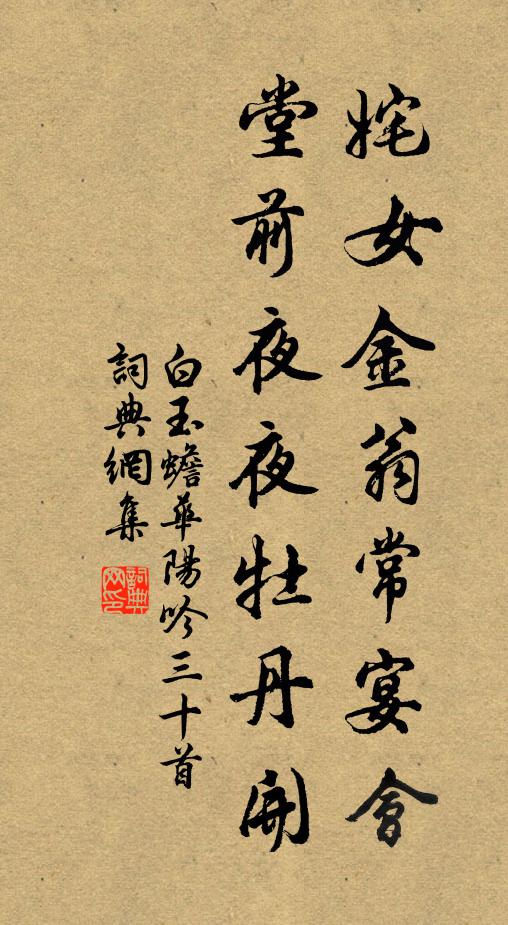 姹女金翁常宴會
堂前夜夜牡丹開
白玉蟾華陽吟三十首
詞典網集
詞典網印